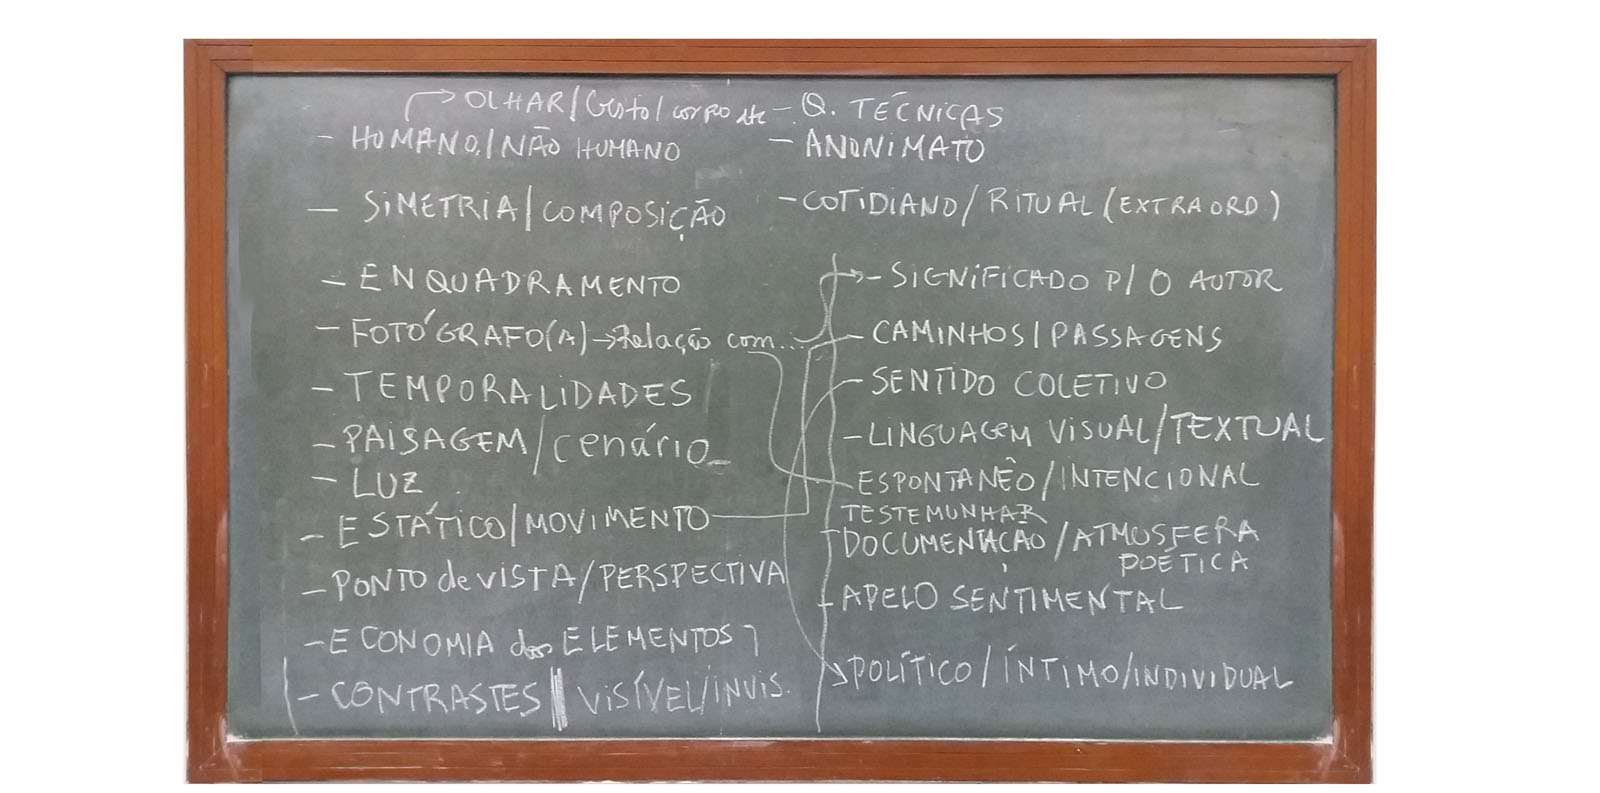 → OLHAR/Gesto/corpo etc
- HUMANO/NÃO HUMANO
- SIMETRIA/COMPOSIÇÃO
- ENQUADRAMENTO
- FOTÓGRAFO(A) → Relação com...
- TEMPORALIDADES
- PAISAGEM/cenário
- LUZ
- ESTÁTICO/MOVIMENTO
- PONTO de VISTA/PERSPECTIVA
- ECONOMIA dos ELEMENTOS
- CONTRASTES | VISÍVEL/INVIS.
- Q. TÉCNICAS
- ANONIMATO
- COTIDIANO/RITUAL (EXTRAORD.)
- SIGNIFICADO P/ O AUTOR
- CAMINHOS/PASSAGENS
- SENTIDO COLETIVO
- LINGUAGEM VISUAL/TEXTUAL
- ESPONTANÊO/INTENCIONAL
TESTEMUNHAR
- DOCUMENTAÇÃO/ATMOSFERA
POÉTICA
- APELO SENTIMENTAL
POLÍTICO/ÍNTIMO/INDIVIDUAL